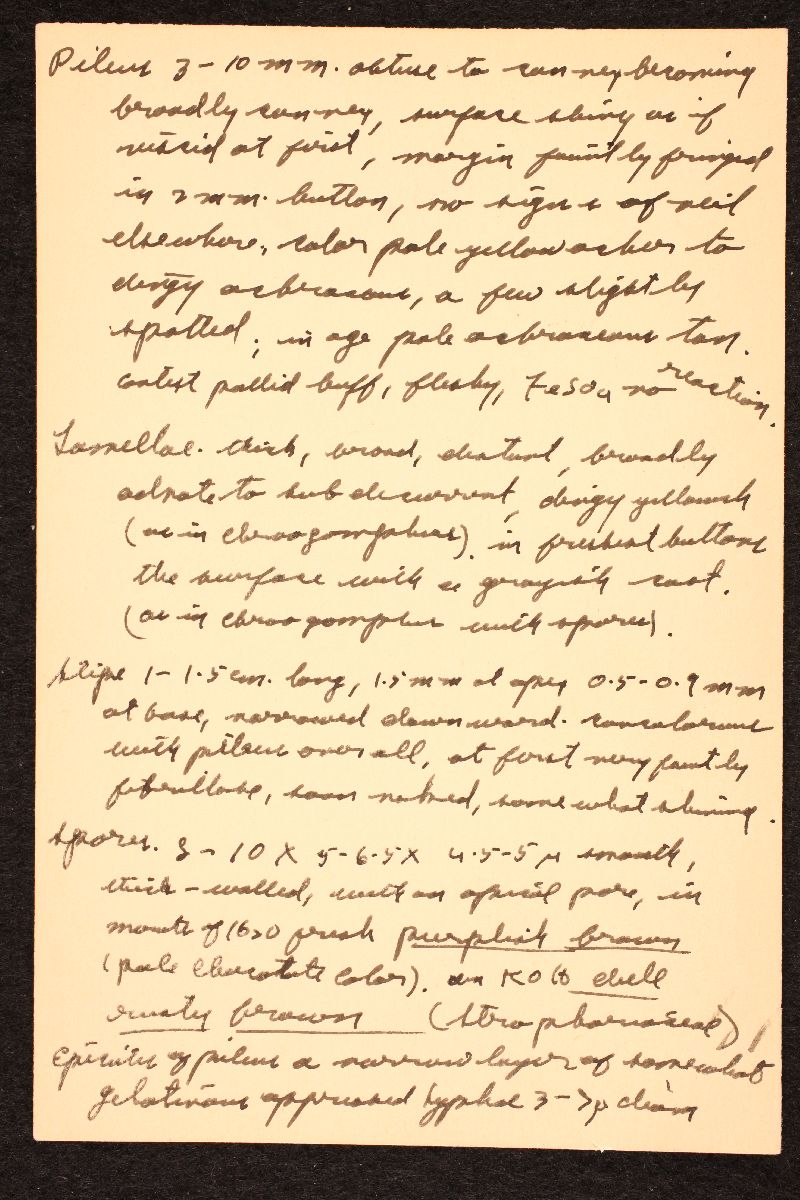 Pileus 3-10 mm. obtuse to convex, becoming
broadly convex, surface shiny as if
viscid at first, margin faintly fringed
in 2 mm. button, no signs of veil
elsewhere, color pale yellow ocher to
dingy ochraceous, a few slightly
spotted, in age pale ochraceous tan.
context pallid buff, fleshy, FeSO4 no reaction.
Lamellae. thick, broad, distant, broadly
adnate to subdecurrent, dingy yellowish
(as in chroogomphus). in freshest buttons
the surface with a grayish cast.
(as in chroogomphus with spores).
Stipe 1-1.5 cm. long, 1.5 mm at apex 0.5-0.9 mm
at base, narrowed downward. concolorous
with pileus over all, at first very faintly
fibrillose, soon naked, somewhat shining.
Spores. 8-10 X 5-6.5 X 4.5-5 µ smooth,
thick-walled, with an apical pore, in
mounts of H2O fresh purplish brown
(pale chocolate color). in KOH dull
rusty brown (Strophariaceae)
Epicutis of pileus a narrow layer of somewhat
gelatinous appressed hyphae 3-7 µ diam